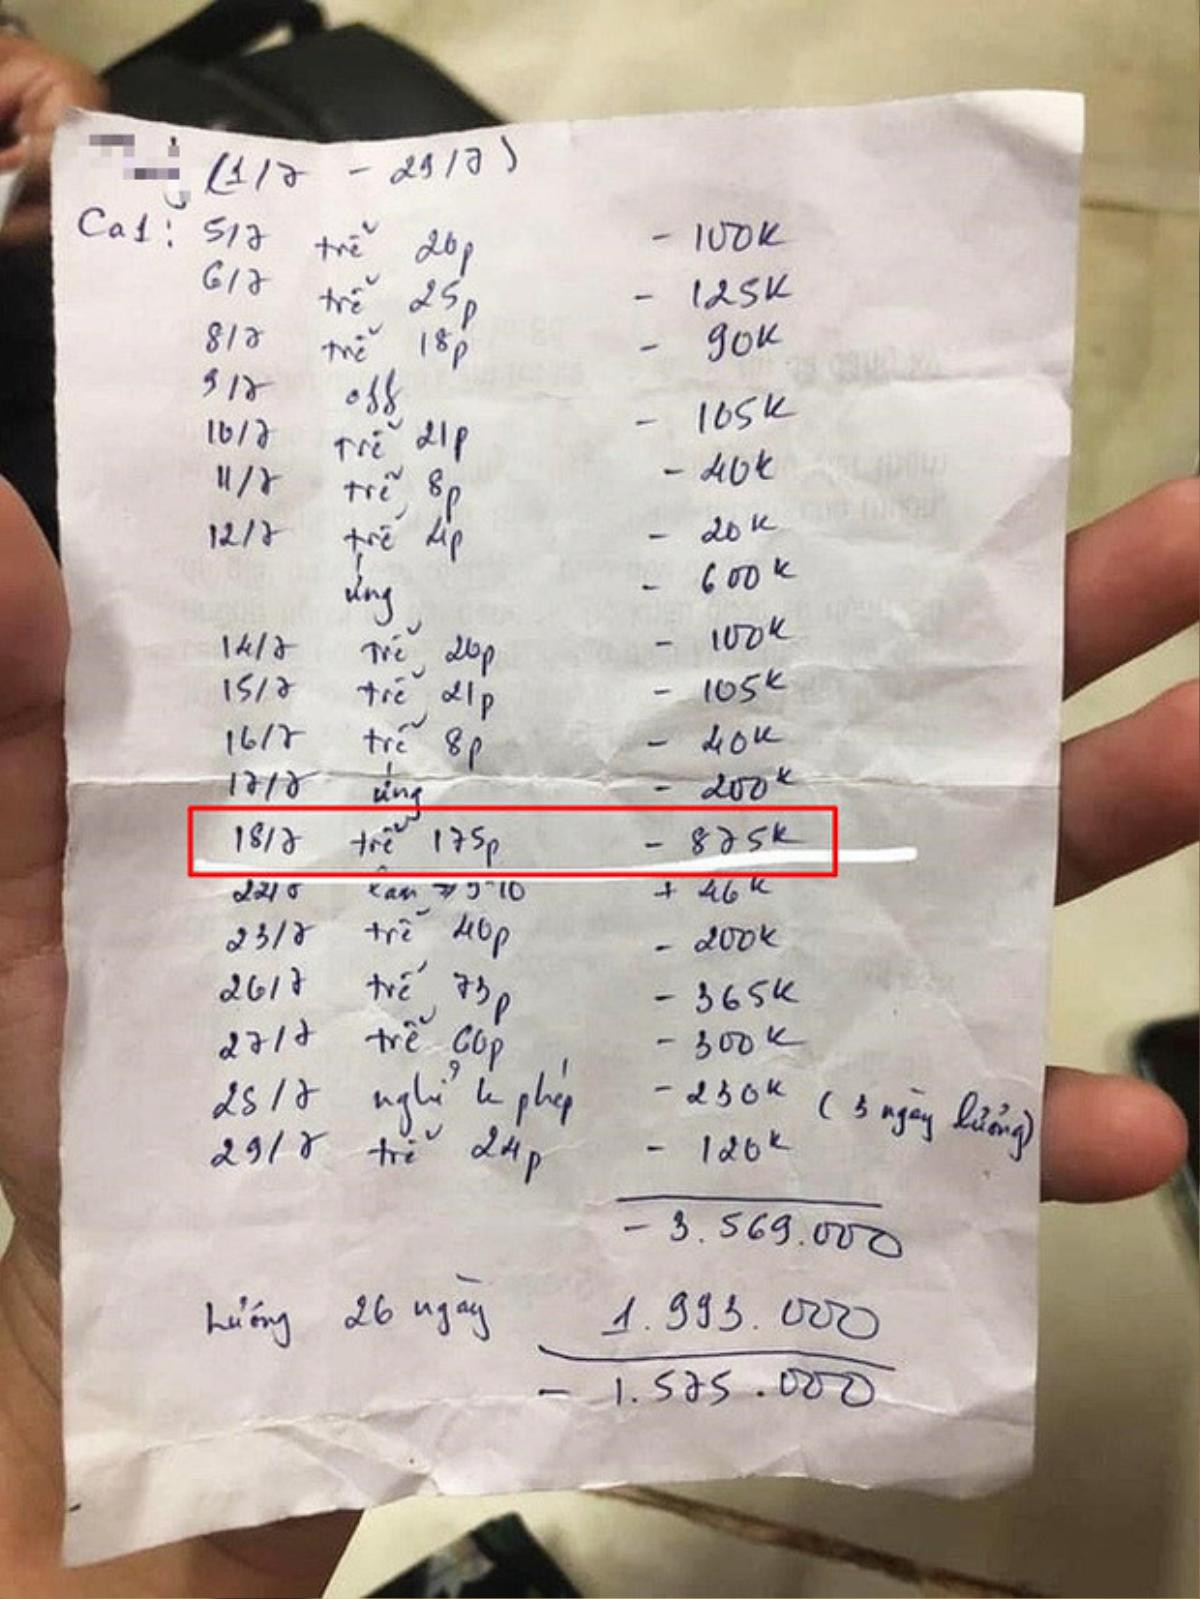 (1/7 - 29/7)
Ca1: 5/7 trễ 20p - 100K
6/7 trễ 25p - 125K
8/7 trễ 18p - 90K
9/7 off
10/7 trễ 21p - 105K
11/7 trễ 8p - 40K
12/7 trễ 4p - 20K
ứng - 600K
14/7 trễ 20p - 100K
15/7 trễ 21p - 105K
16/7 trễ 8p - 40K
17/7 ứng - 200K
18/7 trễ 175p - 875K
+ 46K
23/7 trễ 40p - 200K
26/7 trễ 73p - 365K
27/7 trễ 60p - 300K
28/7 nghỉ k phép - 230K (3 ngày lương)
29/7 trễ 24p - 120K
- 3.569.000
Lương 26 ngày 1.993.000
- 1.575.000